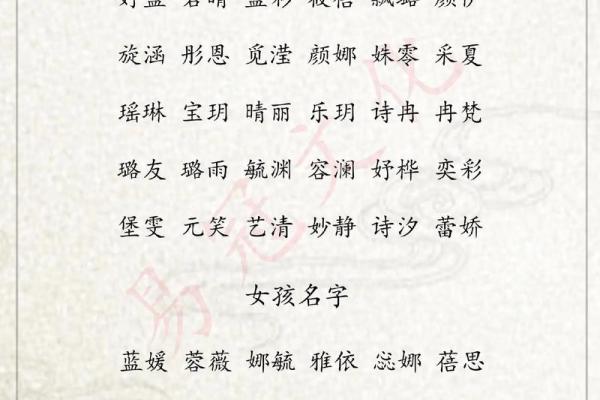 旋涵 彤恩 觅滢 颜娜 姝零 采夏
瑶琳 宝玥 晴丽 乐玥 诗冉 冉梵
璐友 璐雨 毓渊 容澜 妤桦 奕彩
堡雯 元笑 艺清 妙静 诗汐 蕾娇
女孩名字
蓝媛 蓉薇 娜毓 雅依 惢娜 蓓思
易冠文化